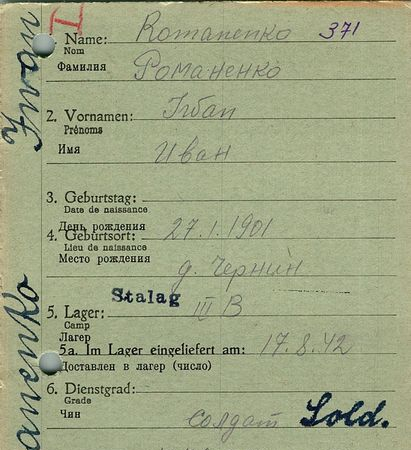 I
Iwan
anenko
1. Name: Romanenko 371
Nom
Фамилия Романенко
2. Vornamen: Iван
Prénoms
Имя Иван
3. Geburtstag:
Date de naissance
День рождения 27.1.1901
4. Geburtsort:
Lieu de naissance
Место рождения д. Чернин
Stalag
5. Lager: III B
Camp
Лагер
5a. Im Lager eingeliefert am: 17.8.42
Доставлен в лагер (число)
6. Dienstgrad:
Grade
Чин солдат Sold.